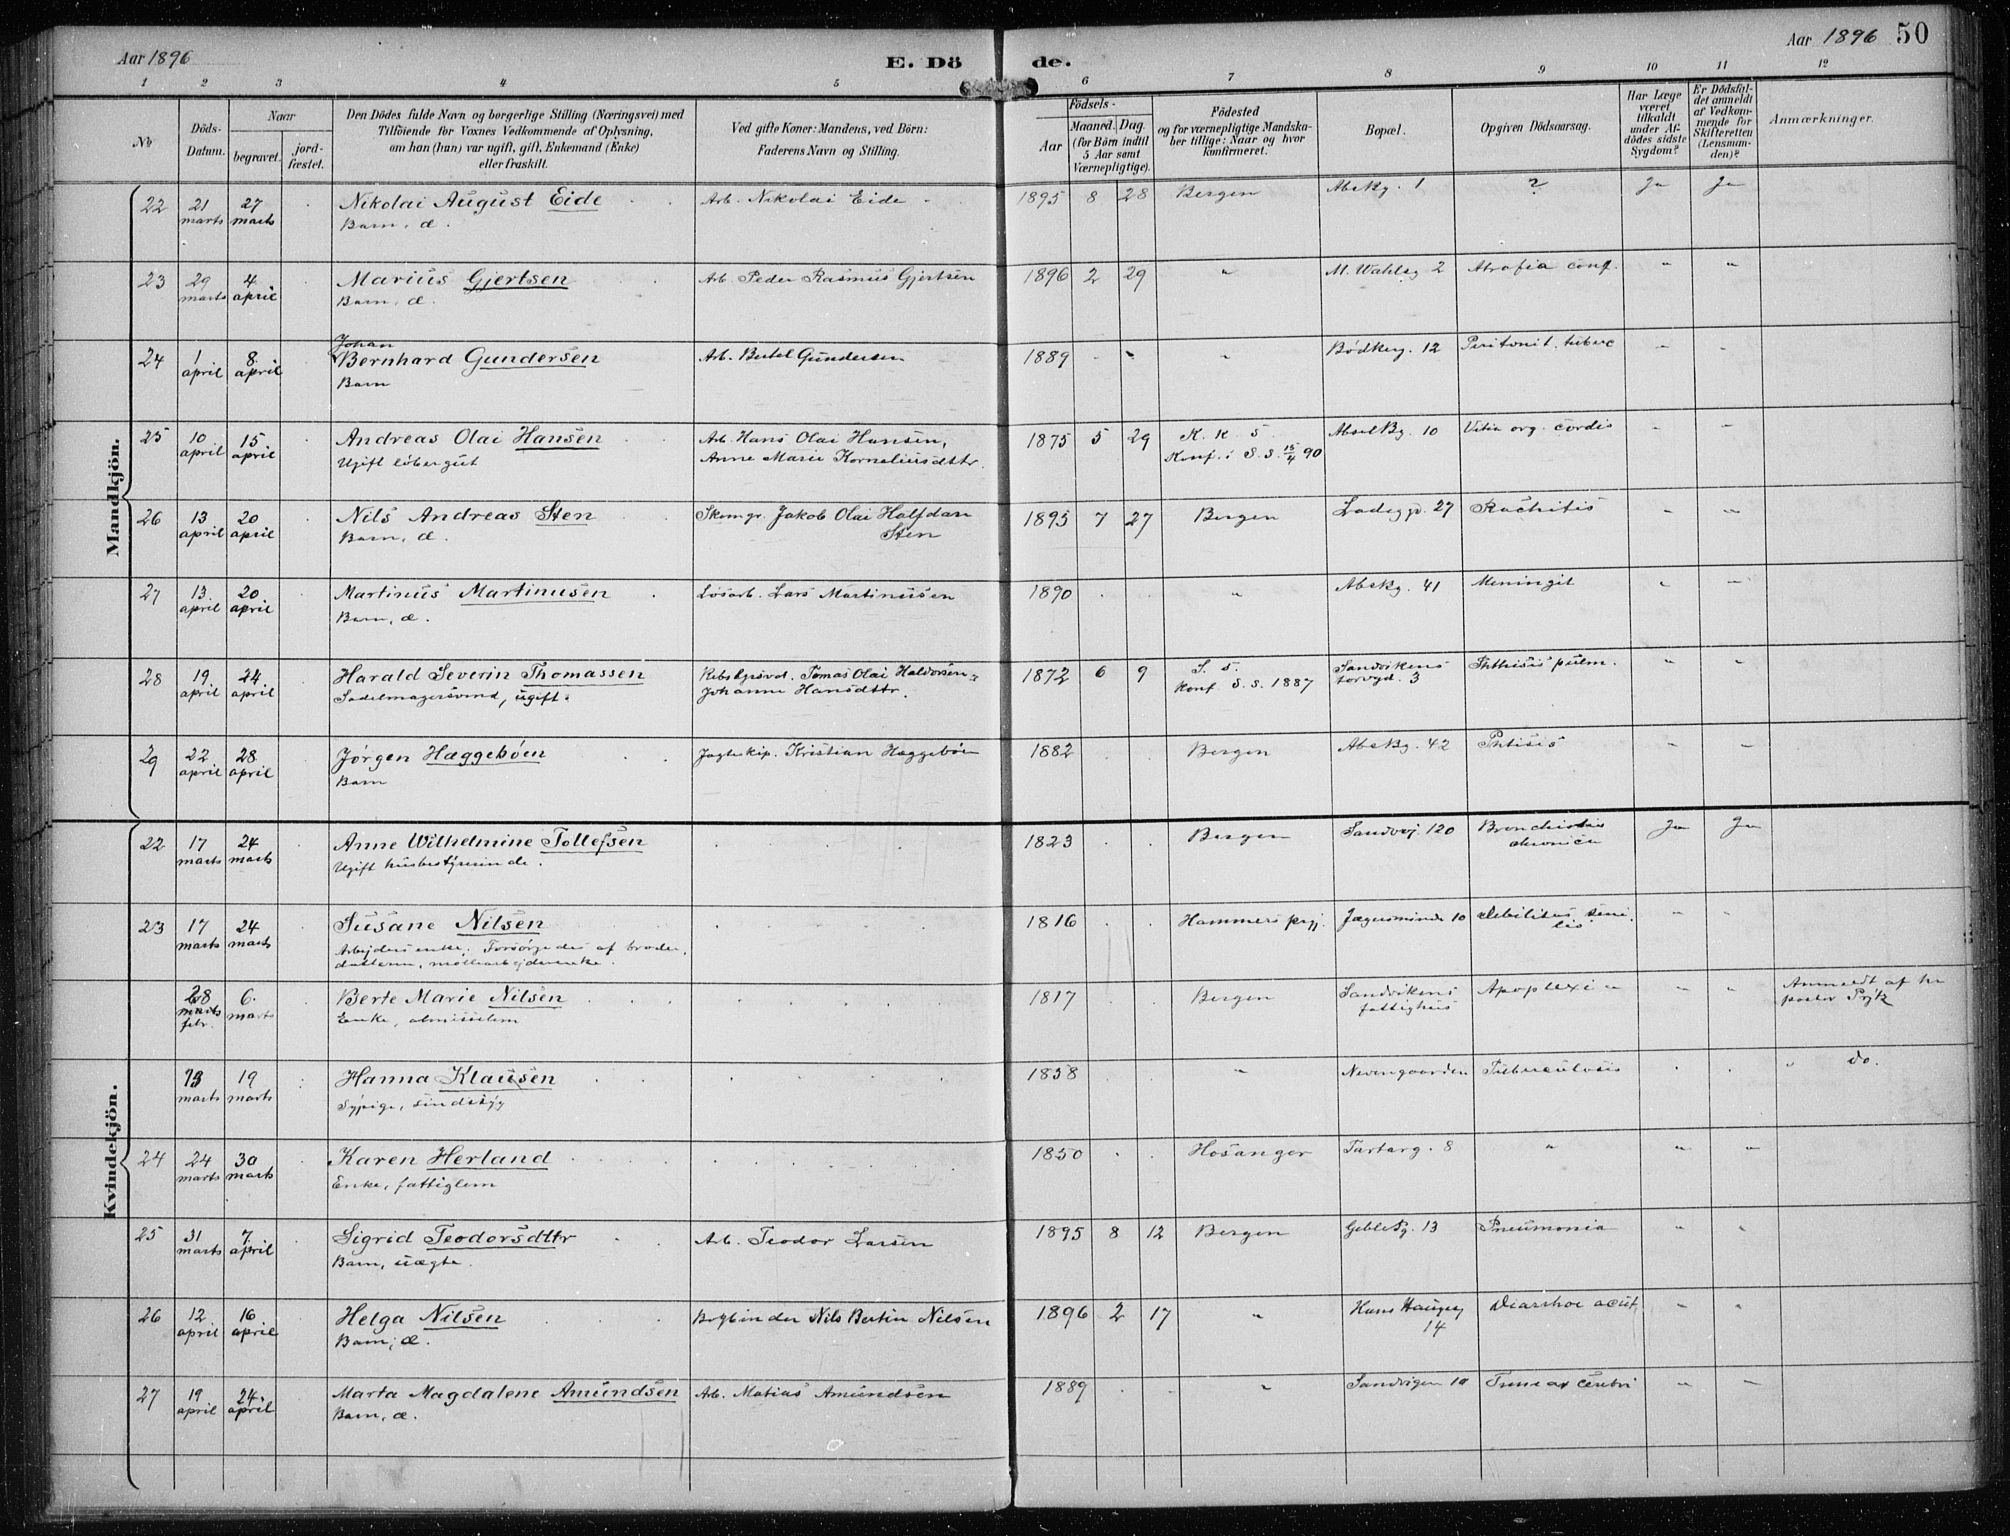 Aar 1896
E. Dö
de.
Aar 1896 50
1 2 3 4 5 6 7 8 9 10 11 12
No
Döds-Datum.
Naar
begravet.
jord-fæstet.
Den Dödes fulde Navn og borgerlige Stilling (Næringsvei) med
Tilföiende for Voxnes Vedkommende af Oplysning,
om han (hun) var ugift, gift, Enkemand (Enke)
eller fraskilt.
Ved gifte Koner: Mandens, ved Börn:
Faderens Navn og Stilling.
Födsels-
Aar
Maaned. Dag.
(for Börn indtil
5 Aar samt
Værnepligtige).
Födested
og for værnepligtige Mandska-
ber tillige: Naar og hvor
konfirmeret.
Bopæl.
Opgiven Dödsaarsag.
Har Læge
været
tilkaldt
under Af-
dödes sidste
Sygdom?
Er Dödsfal-
det anmeldt
af Vedkom-
mende for
Skifteretten
(Lensman-
den)?
Anmærkninger.
Mandkjön.
22 21 marts 27 marts Nikolai August Eide Arb. Nikolai Eide 1895 8 28 Bergen Abskg. 1 ? Ja Ja
Barn, æ.
23 29 marts 4 april Marius Gjertsen Arb. Peder Rasmus Gjertsen 1896 2 29 " M. Wahlsg 2 Atrofia conf. " "
Barn, æ.
Johan
24 1 april 8 april Bernhard Gundersen Arb. Bertel Gundersen 1889 " Bødkerg. 12 Peritonit. tuberc " "
Barn
25 10 april 15 april Andreas Olai Hansen Arb. Hans Olai Hansen, 1875 5 29 K. K. S. Abselkg. 10 Vitia org. cordis " "
Ugift løbergut Anne Marie Korneliusdttr. Konf. i S. S. 15/4 90
26 13 april 20 april Nils Andreas Sten Skomgr. Jakob Olai Halfdan 1895 7 27 Bergen Ladeggd. 27 Rachitis " "
Barn, æ. Sten
27 13 april 20 april Martinus Martinusen Løsarb. Lars Martinusen 1890 " Abskg. 41 Meningit " "
Barn, æ.
28 19 april 24 april Harald Severin Thomassen Rebslgrsvd. Tomas Olai Haldorsen, 1872 6 9 S. S. Sandvikens Phthisis pulm. " "
Sadelmagersvend, ugift. Johanne Hansdttr. konf. S. S. 1887 torvgd. 3
29 22 april 28 april Jørgen Hæggebøen Jagteskip. Kristian Hæggebøen 1882 Bergen Abskg. 42 Phtisis " "
Barn
Kvindekjön.
22 17 marts 24 marts Anne Wilhelmine Tollefsen 1823 Bergen Sandvvj 120 Bronchitis Ja Ja
Ugift husbestyrerinde. chronica
23 17 marts 24 marts Susane Nilsen 1816 Hammers prgj. Jægersminde 10 Debilitas seni- " "
Arbejdersenke. Forsørgedes af broder- lis
datteren, møllearbejderenke.
28 marts febr. 6 marts Berte Marie Nilsen 1817 Bergen Sandvikens Apoplexia " " Anmeldt af hr
Enke, almisselem fattighus pastor Prytz
13 marts 19 marts Hanna Klausen 1838 " Nevengaarden Tuberculosis do.
Sypige, sindssyg
24 24 marts 30 marts Karen Herland 1850 Hosanger Tartarg. 8 " " "
Enke, fattiglem
25 31 marts 7 april Sigrid Teodorsdttr Arb. Teodor Larsen 1895 8 12 Bergen Gebleskg. 13 Pneumonia " "
Barn, uægte.
26 12 april 16 april Helga Nilsen Bogbinder Nils Bertin Nilsen 1896 2 17 " Hans Haugesg Diarrhoe acut. " "
Barn, æ. 14
27 19 april 24 april Marta Magdalene Amundsen Arb. Matias Amundsen 1889 " Sandvigen 10 Tumor cerebri " "
Barn, æ.